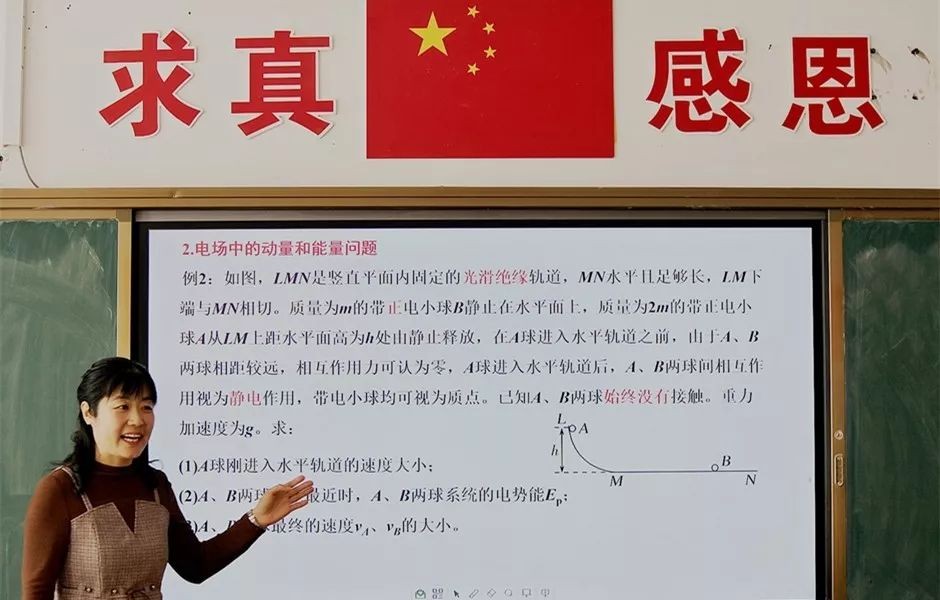 求真
感恩
2.电场中的动量和能量问题
例2：如图，LMN是竖直平面内固定的光滑绝缘轨道，MN水平且足够长，LM下
端与MN相切。质量为m的带正电小球B静止在水平面上，质量为2m的带正电小
球A从LM上距水平面高为h处由静止释放，在A球进入水平轨道之前，由于A、B
两球相距较远，相互作用力可认为零，A球进入水平轨道后，A、B两球间相互作
用视为静电作用，带电小球均可视为质点。已知A、B两球始终没有接触。重力
加速度为g。求：
L
A
h
B
M
N
(1)A球刚进入水平轨道的速度大小；
(2)A、B两球最近时，A、B两球系统的电势能Eₚ；
)A、B最终的速度v_A、v_B的大小。